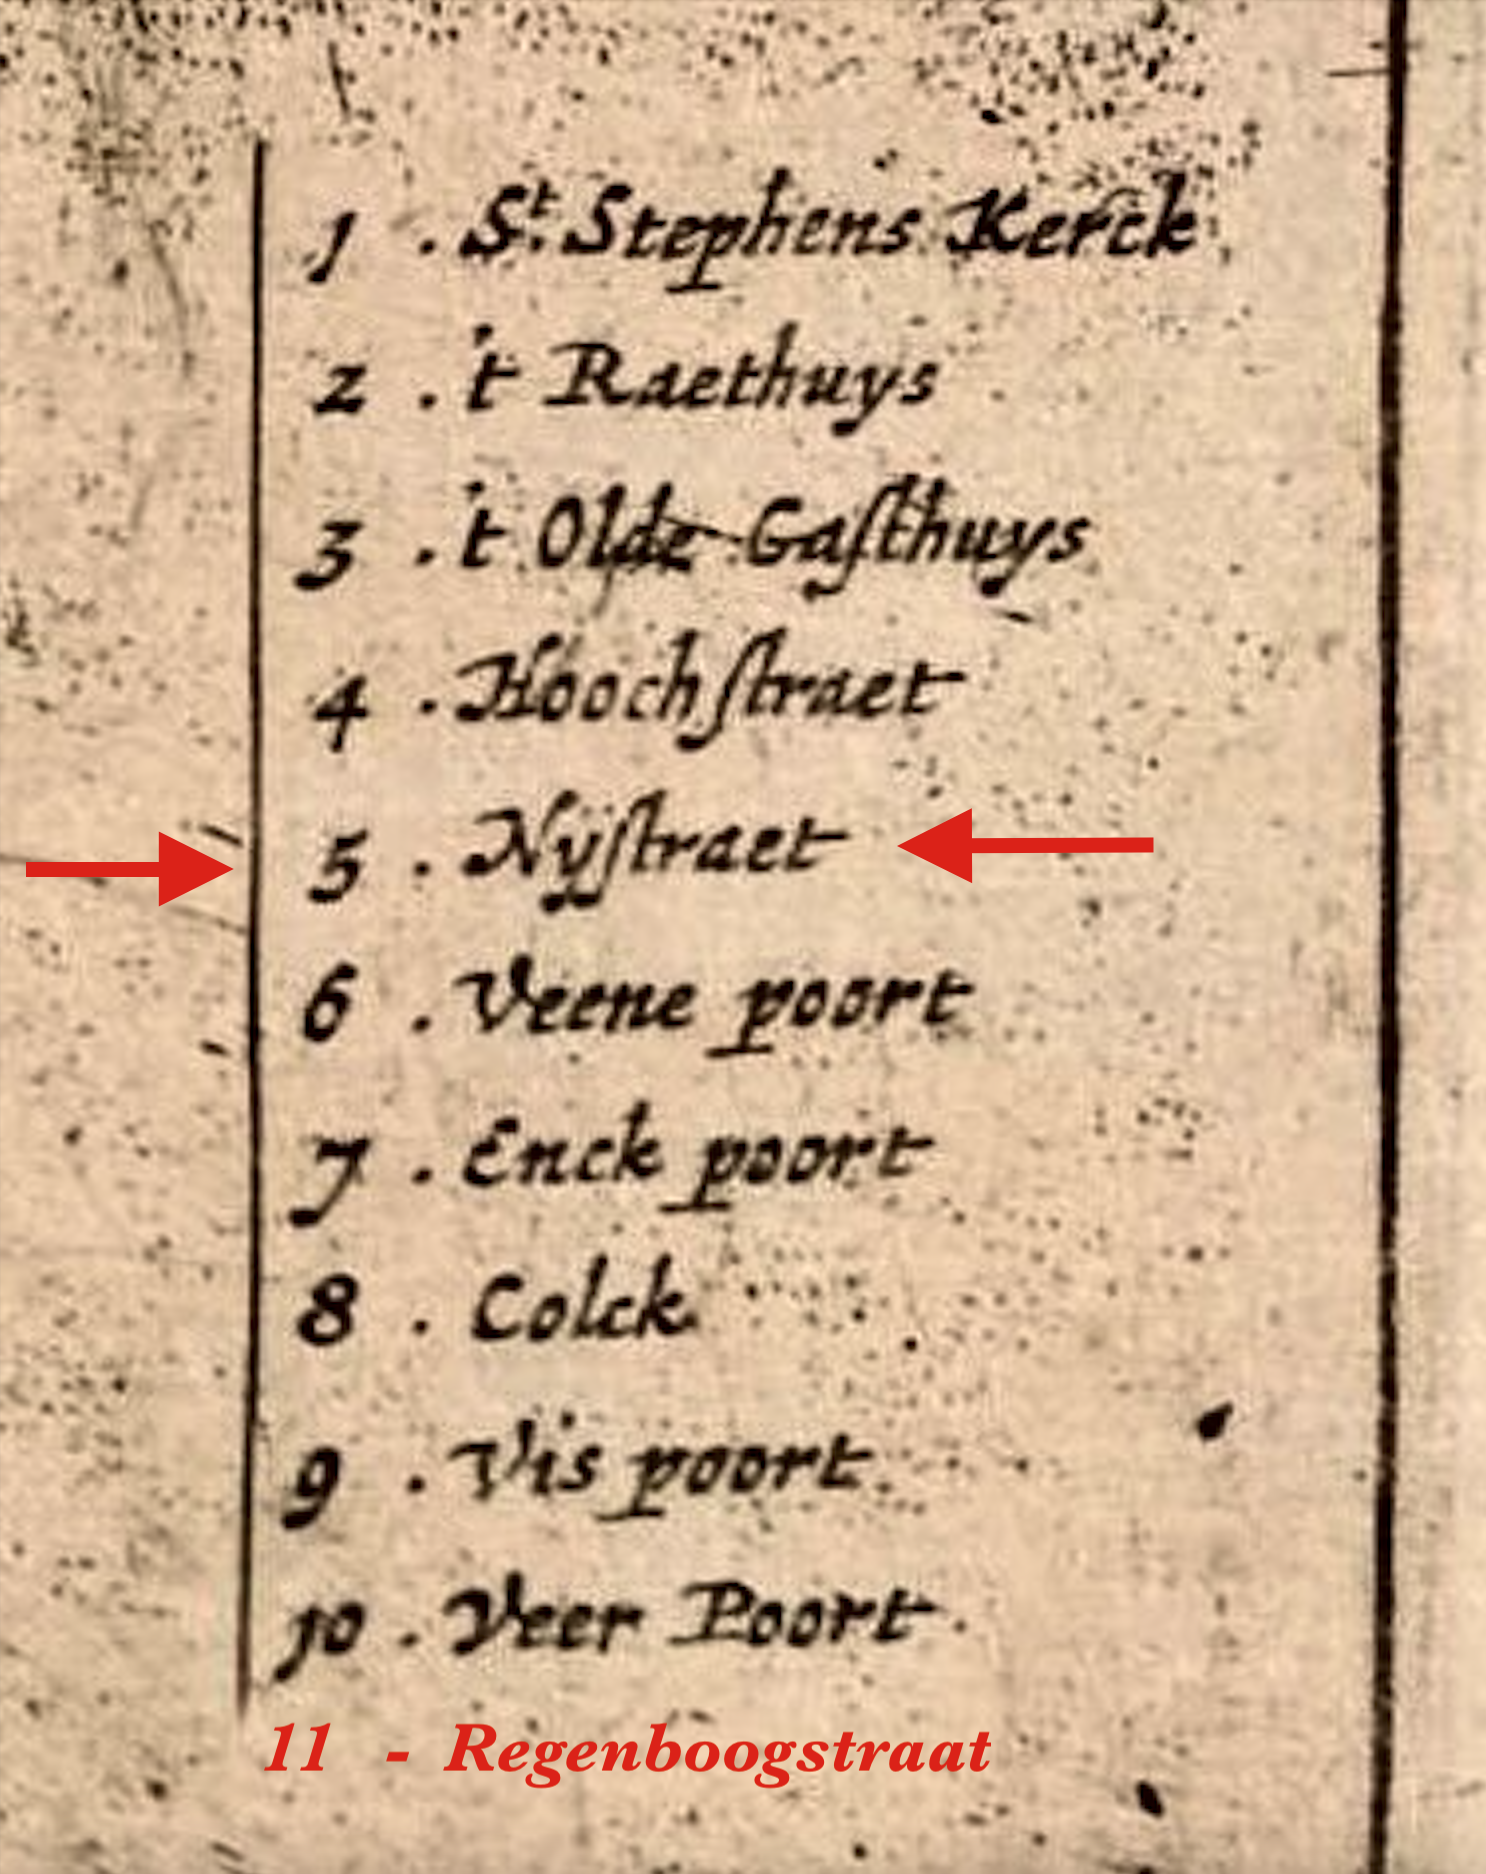 1 . St. Stephens Kerck
2 . 't Raethuys
3 . 't Olde Gaſthuys
4 . Hoochſtraet
5 . Nyſtraet
6 . Veene poort
7 . Enck poort
8 . Colck
9 . Vis poort
10 . Veer Poort .
11 - Regenboogstraat